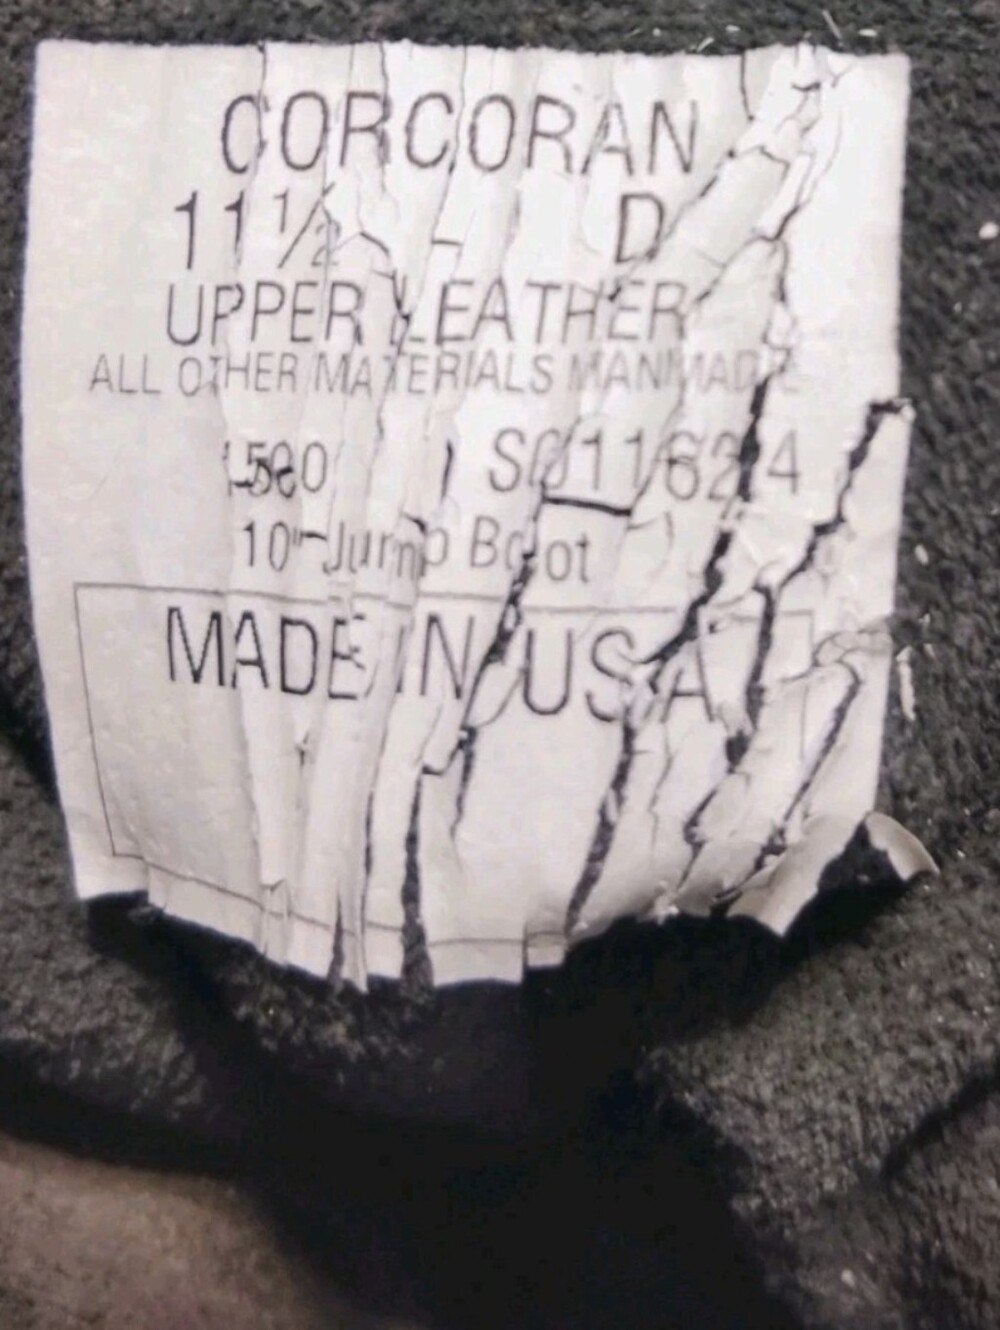 CORCORAN
11 1/2 D
UPPER LEATHER
ALL OTHER MATERIALS MANMADE
1500 SO11624
10" Jump Boot
MADE IN USA